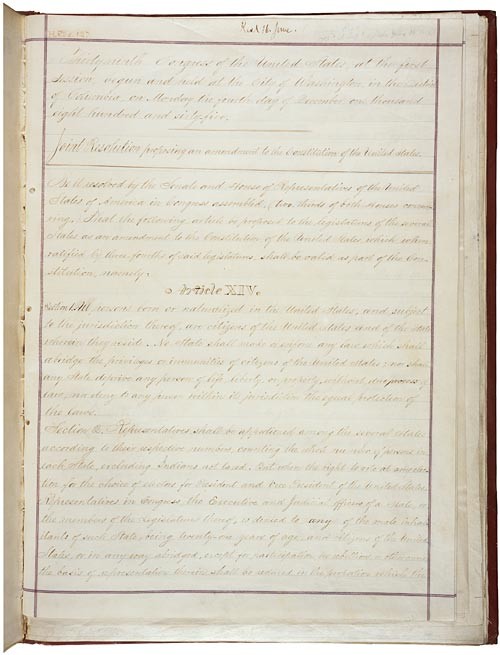 Rec'd 16. June.
Thirty-ninth Congress of the United States, at the first
Session, begun and held at the City of Washington, in the District
of Columbia, on Monday the fourth day of December, one thousand
eight hundred and sixty-five.
Joint Resolution proposing an amendment to the Constitution of the United States.
Be it resolved by the Senate and House of Representatives of the United
States of America in Congress assembled, (two-thirds of both Houses concur-
ring,) That the following article be proposed to the legislatures of the several
States as an amendment to the Constitution of the United States, which, when
ratified by three-fourths of said legislatures, shall be valid as part of the Con-
stitution, namely:
Article XIV.
Section 1. All persons born or naturalized in the United States, and subject
to the jurisdiction thereof, are citizens of the United States and of the State
wherein they reside. No State shall make or enforce any law which shall
abridge the privileges or immunities of citizens of the United States; nor shall
any State deprive any person of life, liberty, or property, without due process of
law, nor deny to any person within its jurisdiction the equal protection of
the laws.
Section 2. Representatives shall be apportioned among the several States
according to their respective numbers, counting the whole number of persons in
each State, excluding Indians not taxed. But when the right to vote at any elec-
tion for the choice of electors for President and Vice President of the United States,
Representatives in Congress, the Executive and Judicial officers of a State, or
the members of the Legislature thereof, is denied to any of the male inhabi-
tants of such State, being twenty-one years of age, and citizens of the United
States, or in any way abridged, except for participation in rebellion, or other crime,
the basis of representation therein shall be reduced in the proportion which the